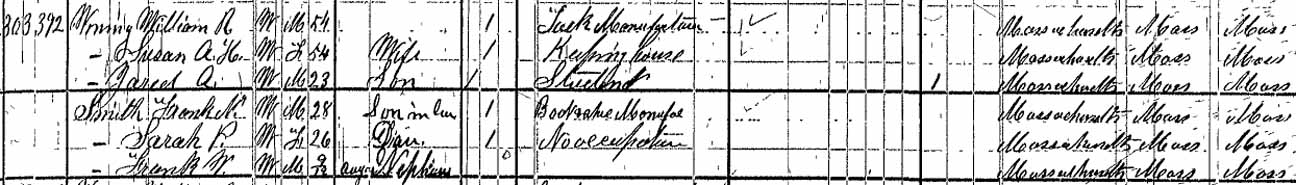 303 392 William R W M 54 1 Tack Manufacturer 1 Massachusetts Mass Mass
— Susan A. H. W F 54 Wife 1 Keeping house Massachusetts Mass Mass
— Jared A. W M 23 Son 1 Student 1 Massachusetts Mass Mass
Smith Frank W M 28 Son in law 1 Massachusetts Mass Mass
— Sarah R W F 26 Dau. 1 No occupation Massachusetts Mass Mass
— Frank W. W M Aug Massachusetts Mass Mass